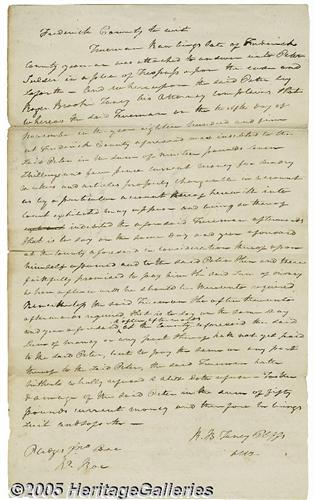 Frederick County to wit
Freeman Rawlings late of Frederick
County yeoman was attached to answer unto Peter
in a plea of Trespass upon the case and
so forth – And whereupon the said Peter by
Roger Brook Taney his Attorney complains that
Whereas the said Freeman on the day of
November in the year eighteen hundred and five
at Frederick County aforesaid was indebted to the
said Peter in the sum of nineteen pounds seven
shillings and four pence current money for sundry
matters and articles properly chargeable in account
as by a particular account thereof herewith into
Court exhibited may appear and being so thereof
indebted the aforesaid Freeman afterwards
that is to say on the same day and year aforesaid
at the County aforesaid in consideration thereof upon
himself assumed and to the said Peter then and there
faithfully promised to pay him the said sum of money
when he should be thereunto required
Nevertheless the said Freeman tho often thereunto
afterwards required that is to say on the same day
and year aforesaid at the County aforesaid the said
sum of money or any part thereof hath not yet paid
to the said Peter, but to pay the same or any part
thereof to the said Peter, the said Freeman hath
hitherto wholly refused & still doth refuse to the
damage of the said Peter in the sum of fifty
pounds current money and therefore he brings
suit and so forth –
R. B. Taney
Pledges Jno Doe
Roe
© 2005 HeritageGalleries.com